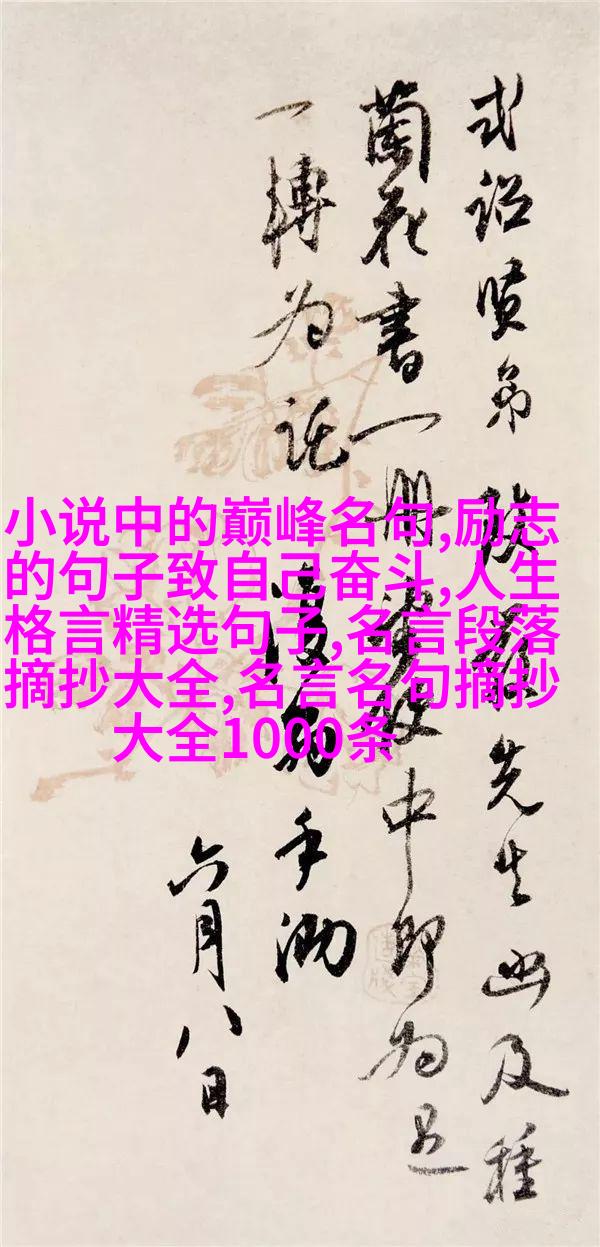 式诏贤弟 先生函及種
蘭花書一册 中即为
一轉为託 手泐
六月八日
小说中的巅峰名句,励志
的句子致自己奋斗,人生
格言精选句子,名言段落
摘抄大全,名言名句摘抄
大全1000条